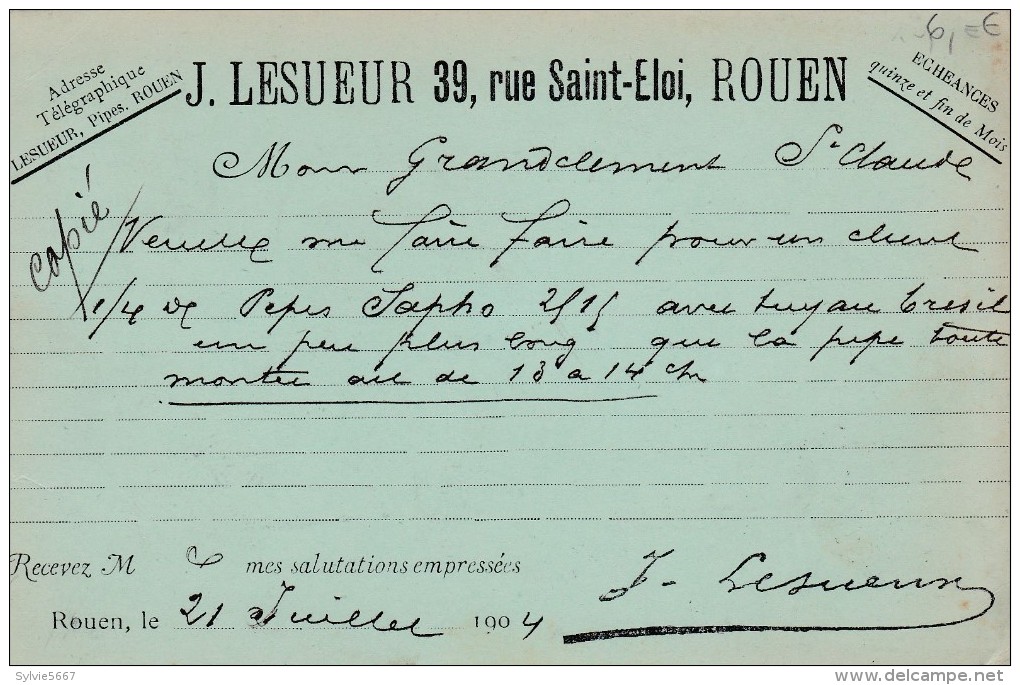 6, EE
Adresse
Télégraphique
LESUEUR, Pipes, ROUEN
J. LESUEUR 39, rue Saint-Eloi, ROUEN
ECHEANCES
quinze et fin de Mois
Monr Grandclement St Claude
copié
Veuillez me faire faire pour un client
1/4 de Pipes Sapho 2515 avec tuyau bresil
un peu plus long que la pipe toute
montée ait de 13 a 14 c/m
Recevez M mes salutations empressées
Rouen, le 21 Juillet 1904
J. Lesueur
Sylvie5667
www.delcampe.net